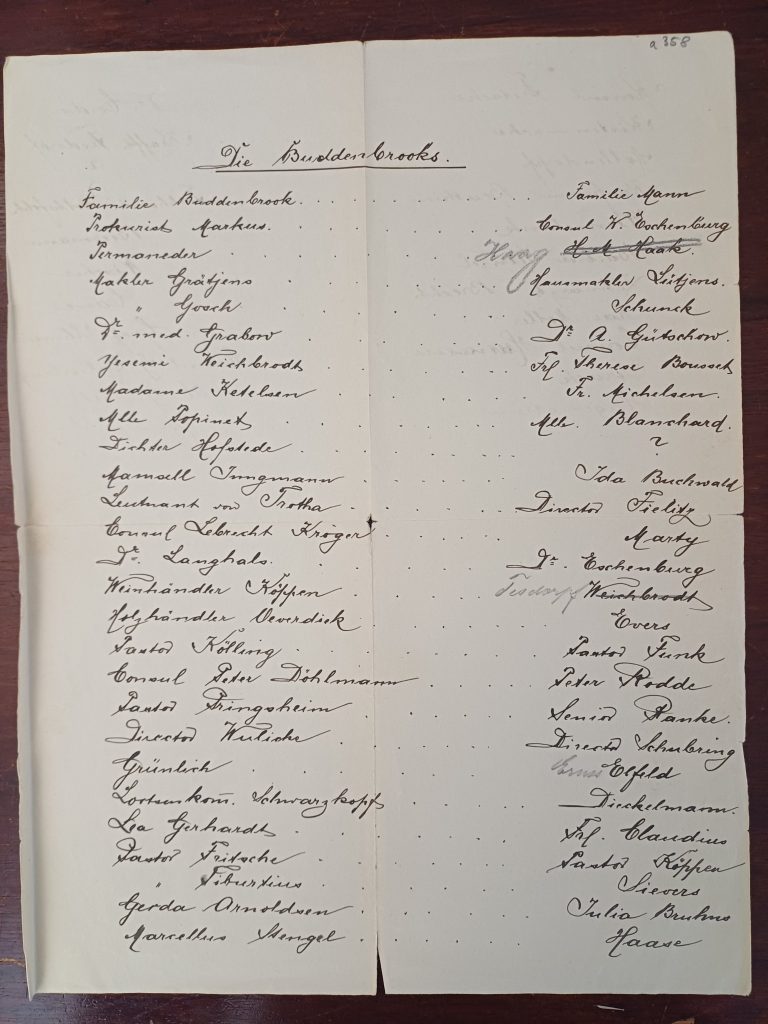 a 358
Die Buddenbrooks.
Familie Buddenbrook . . . . . . . Familie Mann
Prokurist Markus. . . . . . . . Consul W. Eschenburg
Permaneder . . . . . . . Haag H. M. Haak.
Makler Grätjens . . . . . . . Hausmakler Lütjens.
" Gosch . . . . . . . Schunck
Dr. med. Grabow . . . . . . . Dr A. Gütschow.
Sesemi Weichbrodt . . . . . . . Frl. Therese Bousset
Madame Ketelsen . . . . . . . Fr. Michelsen.
Mlle Popinet . . . . . . . Mlle. Blanchard.
Dichter Hofstede . . . . . . . ?
Mamsell Jungmann . . . . . . . Ida Buchwald
Leutnant von Trotha . . . . . . . Director Fielitz
Consul Lebrecht Kröger . . . . . . . Marty
Dr. Langhals. . . . . . . . Dr. Eschenburg
Weinhändler Köppen . . . . . . . Tesdorpf Weichbrodt
Holzhändler Oeverdiek . . . . . . . Evers
Pastor Kölling . . . . . . . Pastor Funk
Consul Peter Döhlmann . . . . . . . Peter Rodde
Pastor Pringsheim . . . . . . . Senior Ranke.
Director Wulicke . . . . . . . Director Schubring
Grünlich . . . . . . . Elfeld
Lootsenkom̄. Schwarzkopf . . . . . . . Dieckelmann.
Lea Gerhardt . . . . . . . Frl. Claudius
Pastor Fritsche . . . . . . . Pastor Köppen
" Tiburtius . . . . . . . Sievers
Gerda Arnoldsen . . . . . . . Julia Bruhns
Marcellus Stengel . . . . . . . Haase